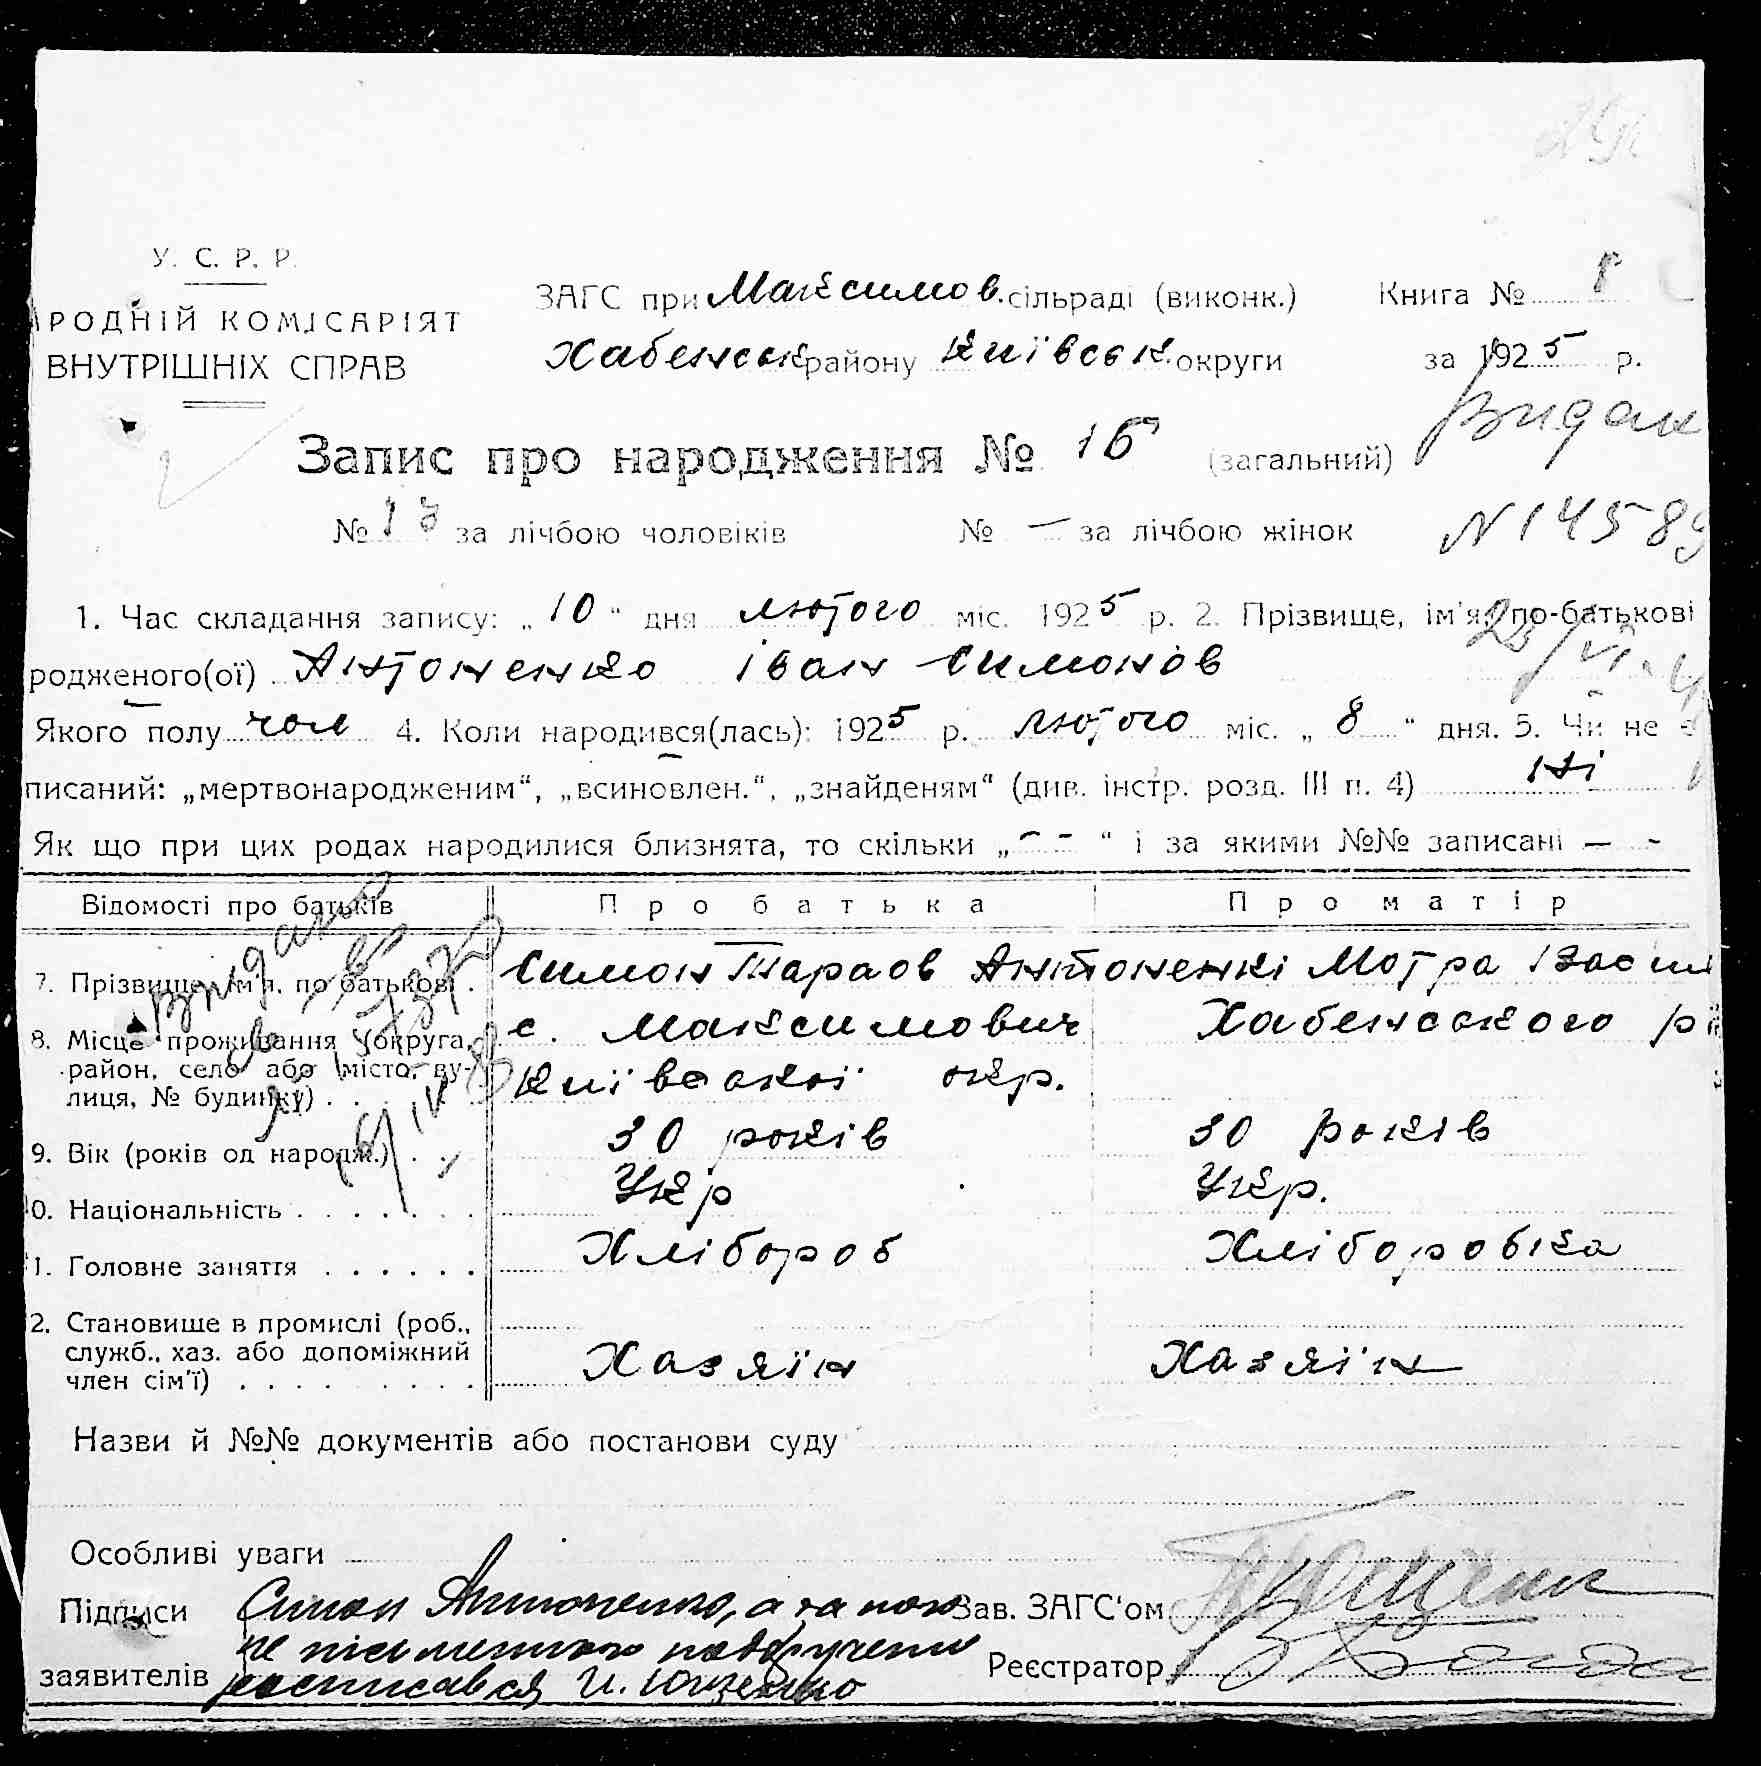 У. С. Р. Р.
РОДНІЙ КОМІСАРІЯТ
ВНУТРІШНІХ СПРАВ
ЗАГС при Максимов. сільраді (виконк.)
Хабенськ району Київськ. округи
Книга № 1
за 1925 р.
Видан
Запис про народження № 15 (загальний)
№ 13 за лічбою чоловіків № — за лічбою жінок
N 14589
1. Час складання запису: „10“ дня лютого міс. 1925 р. 2. Прізвище, ім'я, по-батькові
родженого(ої) Антоненко Іван Симонов
Якого полу чол 4. Коли народився(лась): 1925 р. лютого міс. „8“ дня. 5. Чи не є
писаний: „мертвонародженим“, „всиновлен.“, „знайденям“ (див. інстр. розд. III п. 4) ні
Як що при цих родах народилися близнята, то скільки „- -“ і за якими №№ записані — -
Відомості про батьків Про батька Про матір
7. Прізвище, ім'я, по батькові . Симон Тарасов Антоненкі Мотра Васил
8. Місце проживання (округа, район, село або місто, вулиця, № будинку) . . с. Максимович Хабенського р
Київської окр.
9. Вік (років од народж.) . . 30 років 30 років
0. Національність . . . . . . . Укр Укр.
1. Головне заняття . . . . . . Хлібороб Хліборобка
2. Становище в промислі (роб., служб., хаз. або допоміжний член сім'ї) . . . . . . . . . Хазяїн Хазяїн
Назви й №№ документів або постанови суду
Особливі уваги
Підписи
заявителів
Симон Антоненко, а за
не письменного
росписався И.
Зав. ЗАГС'ом
Реєстратор